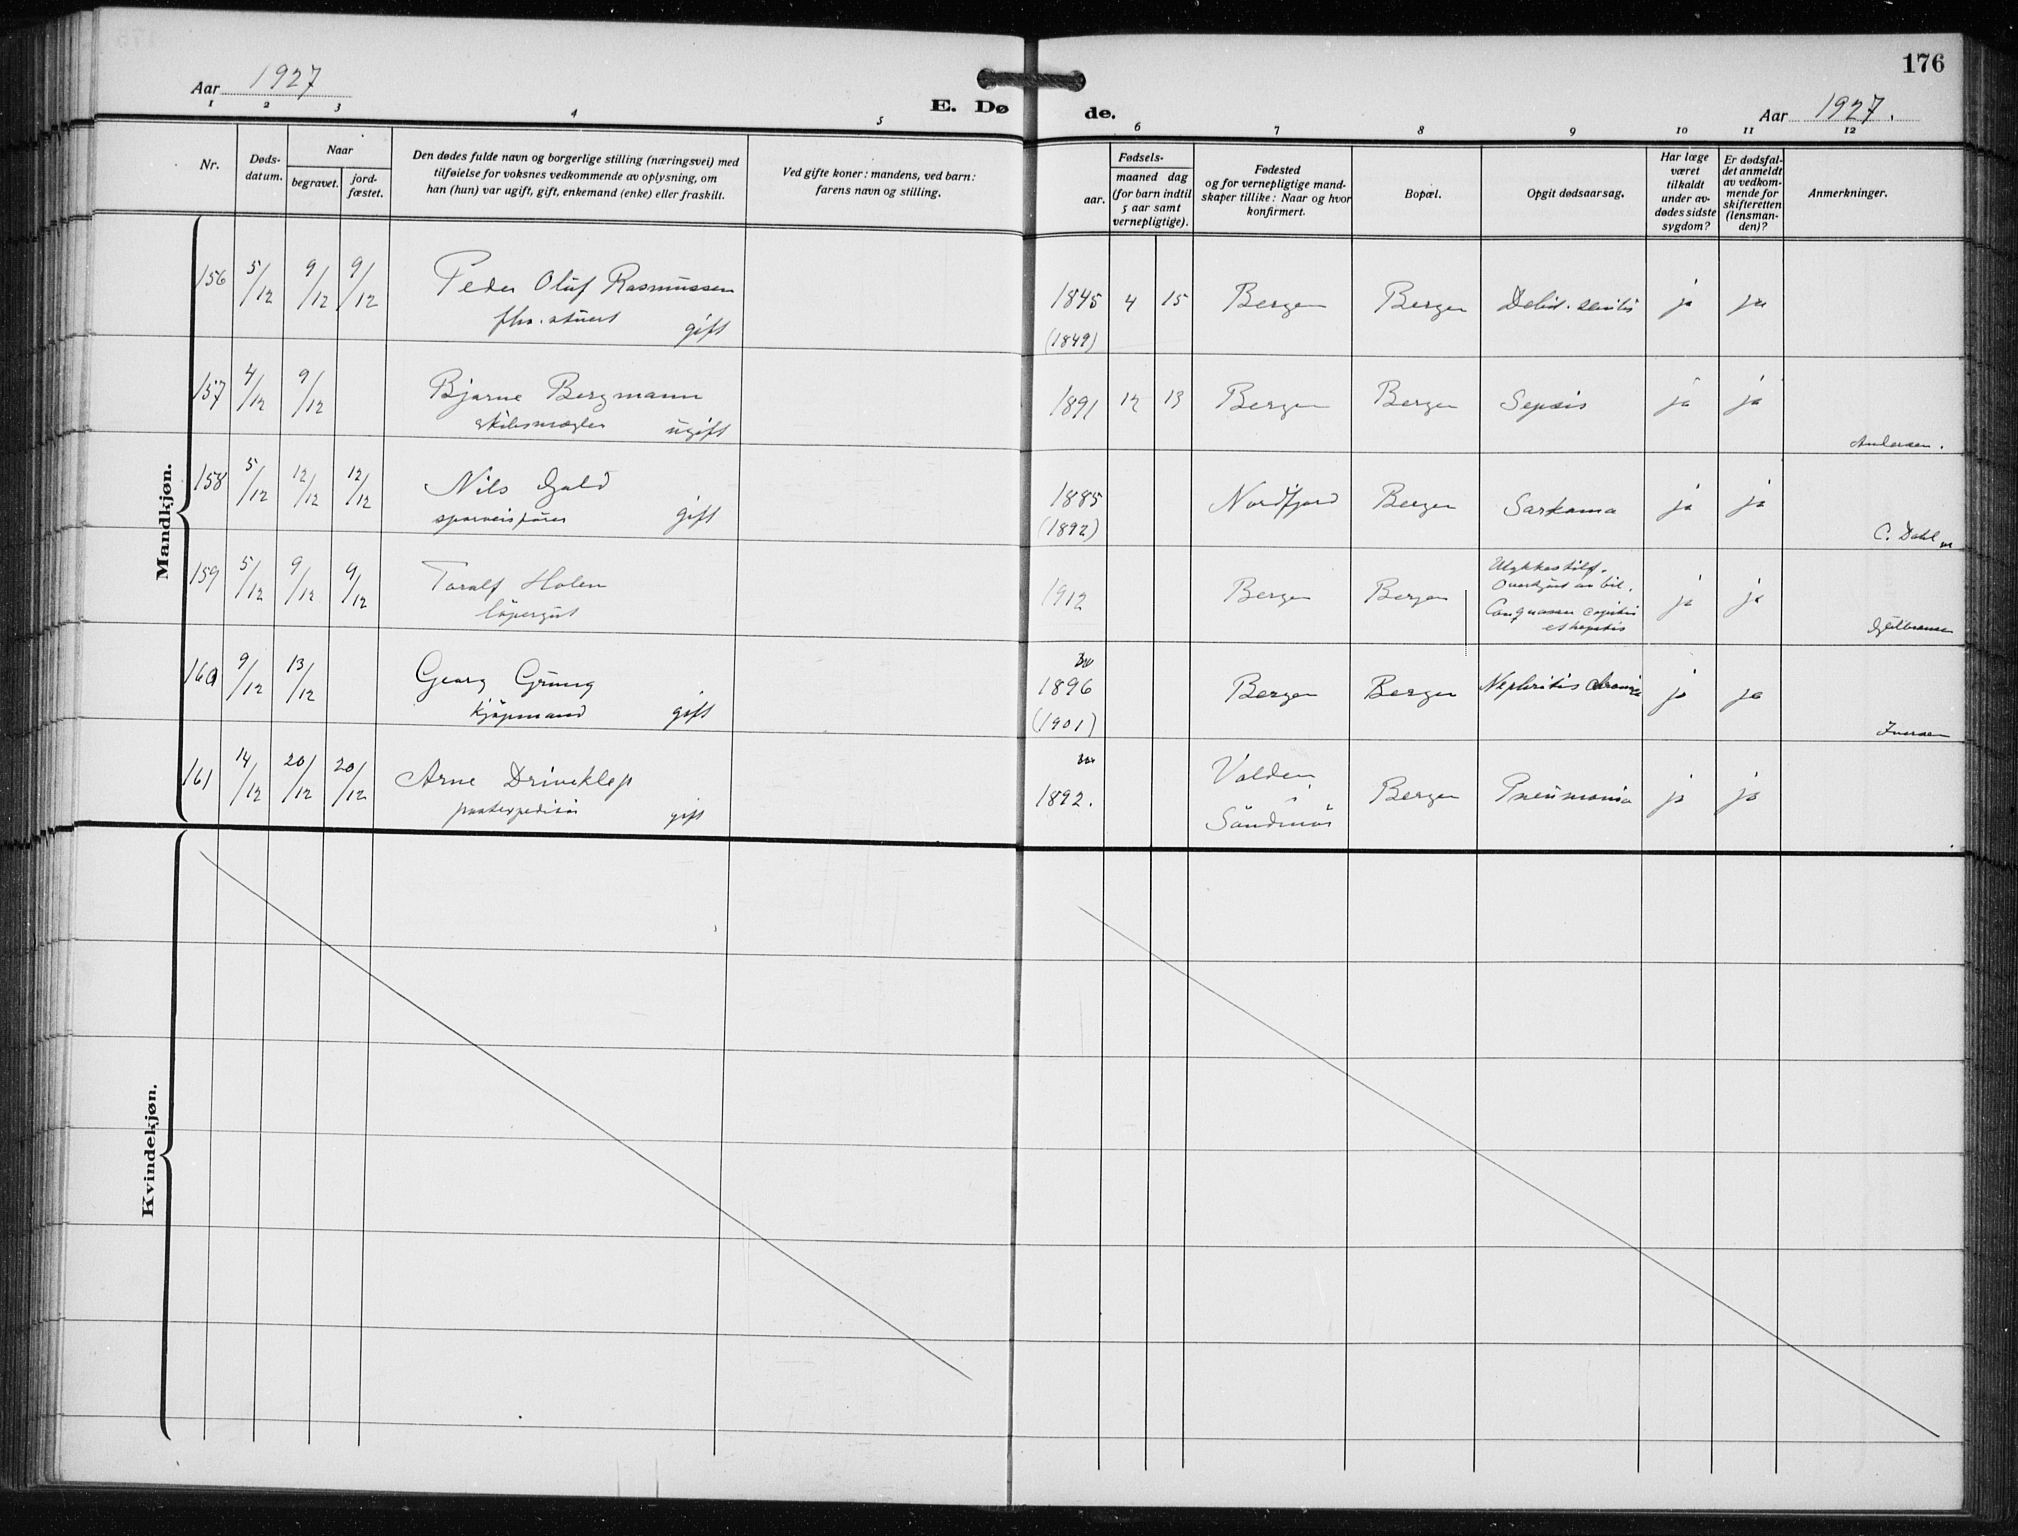 176
Aar 1927
E. Dø de.
Aar 1927.
1 2 3 4 5 6 7 8 9 10 11 12
Nr.
Døds-
datum.
Naar
begravet.
jord-
fæstet.
Den dødes fulde navn og borgerlige stilling (næringsvei) med
tilføielse for voksnes vedkommende av oplysning, om
han (hun) var ugift, gift, enkemand (enke) eller fraskilt.
Ved gifte koner: mandens, ved barn:
farens navn og stilling.
Fødsels-
aar.
maaned dag
(for barn indtil
5 aar samt
vernepligtige).
Fødested
og for vernepligtige mand-
skaper tillike: Naar og hvor
konfirmert.
Bopæl.
Opgit dødsaarsag.
Har læge
været
tilkaldt
under av-
dødes sidste
sygdom?
Er dødsfal-
det anmeldt
av vedkom-
mende for
skifteretten
(lensman-
den)?
Anmerkninger.
Mandkjøn.
156 5/12 9/12 9/12 Peder Oluf Rasmussen 1845 4 15 Bergen Bergen Debil. senilis ja ja
gift (1849)
157 4/12 9/12 Bjarne Bergmann 1891 12 13 Bergen Bergen Sepsis ja ja
skibsmægler ugift Andersen.
158 5/12 12/12 12/12 Nils 1885 Nordfjord Bergen Sarkoma ja ja
sporveisfører gift (1892) C. Dahl
159 5/12 9/12 9/12 Toralf Holen 1912 Bergen Bergen Ulykkestilf. ja ja
løpergut Overkjørt av bil.
160 9/12 13/12 Georg Grung 1896 Bergen Bergen Nephritis chronica ja ja
kjøpmand gift (1901) Iversen
161 14/12 20/12 20/12 Arne Driveklep 1892. Volden i Søndmør Bergen Pneumonia ja ja
postexpeditør gift
Kvindekjøn.